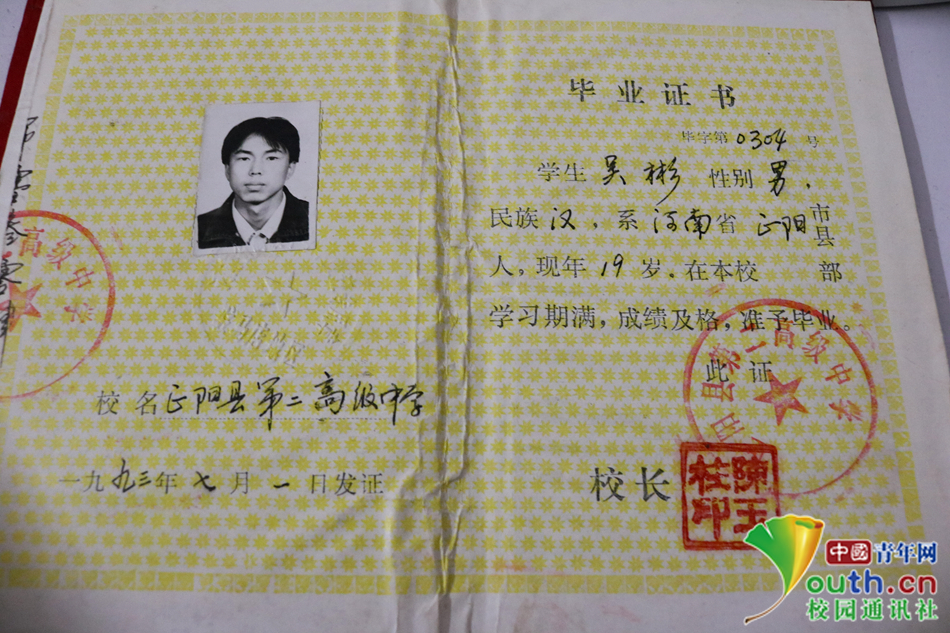 毕业证书
毕字第0304号
学生 吴彬 性别 男，
民族 汉，系 河南省 正阳 市县
人，现年 19 岁．在本校 部
学习期满，成绩及格，准予毕业。
此证
校长
陈玉柱印
校名 正阳县第二高级中学
一九九三年七月一日发证
高级中学
阳县第二高级中学
中國青年网
youth.cn
校园通讯社